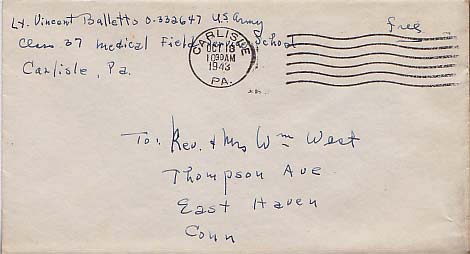 Lt. Vincent Balletto O-332647 U.S Army
Class 37 Medical Field Service School
Carlisle, Pa.
free
CARLISLE
OCT 13
1030AM
1943
PA.
To: Rev. & Mrs Wm West
Thompson Ave
East Haven
Conn